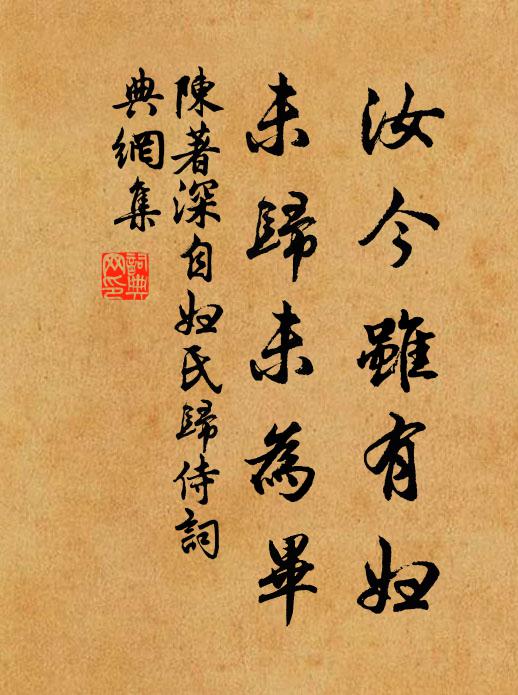 汝今雖有妇
未歸未為畢
陳著深自妇氏歸侍詞
典網集
詞典網印